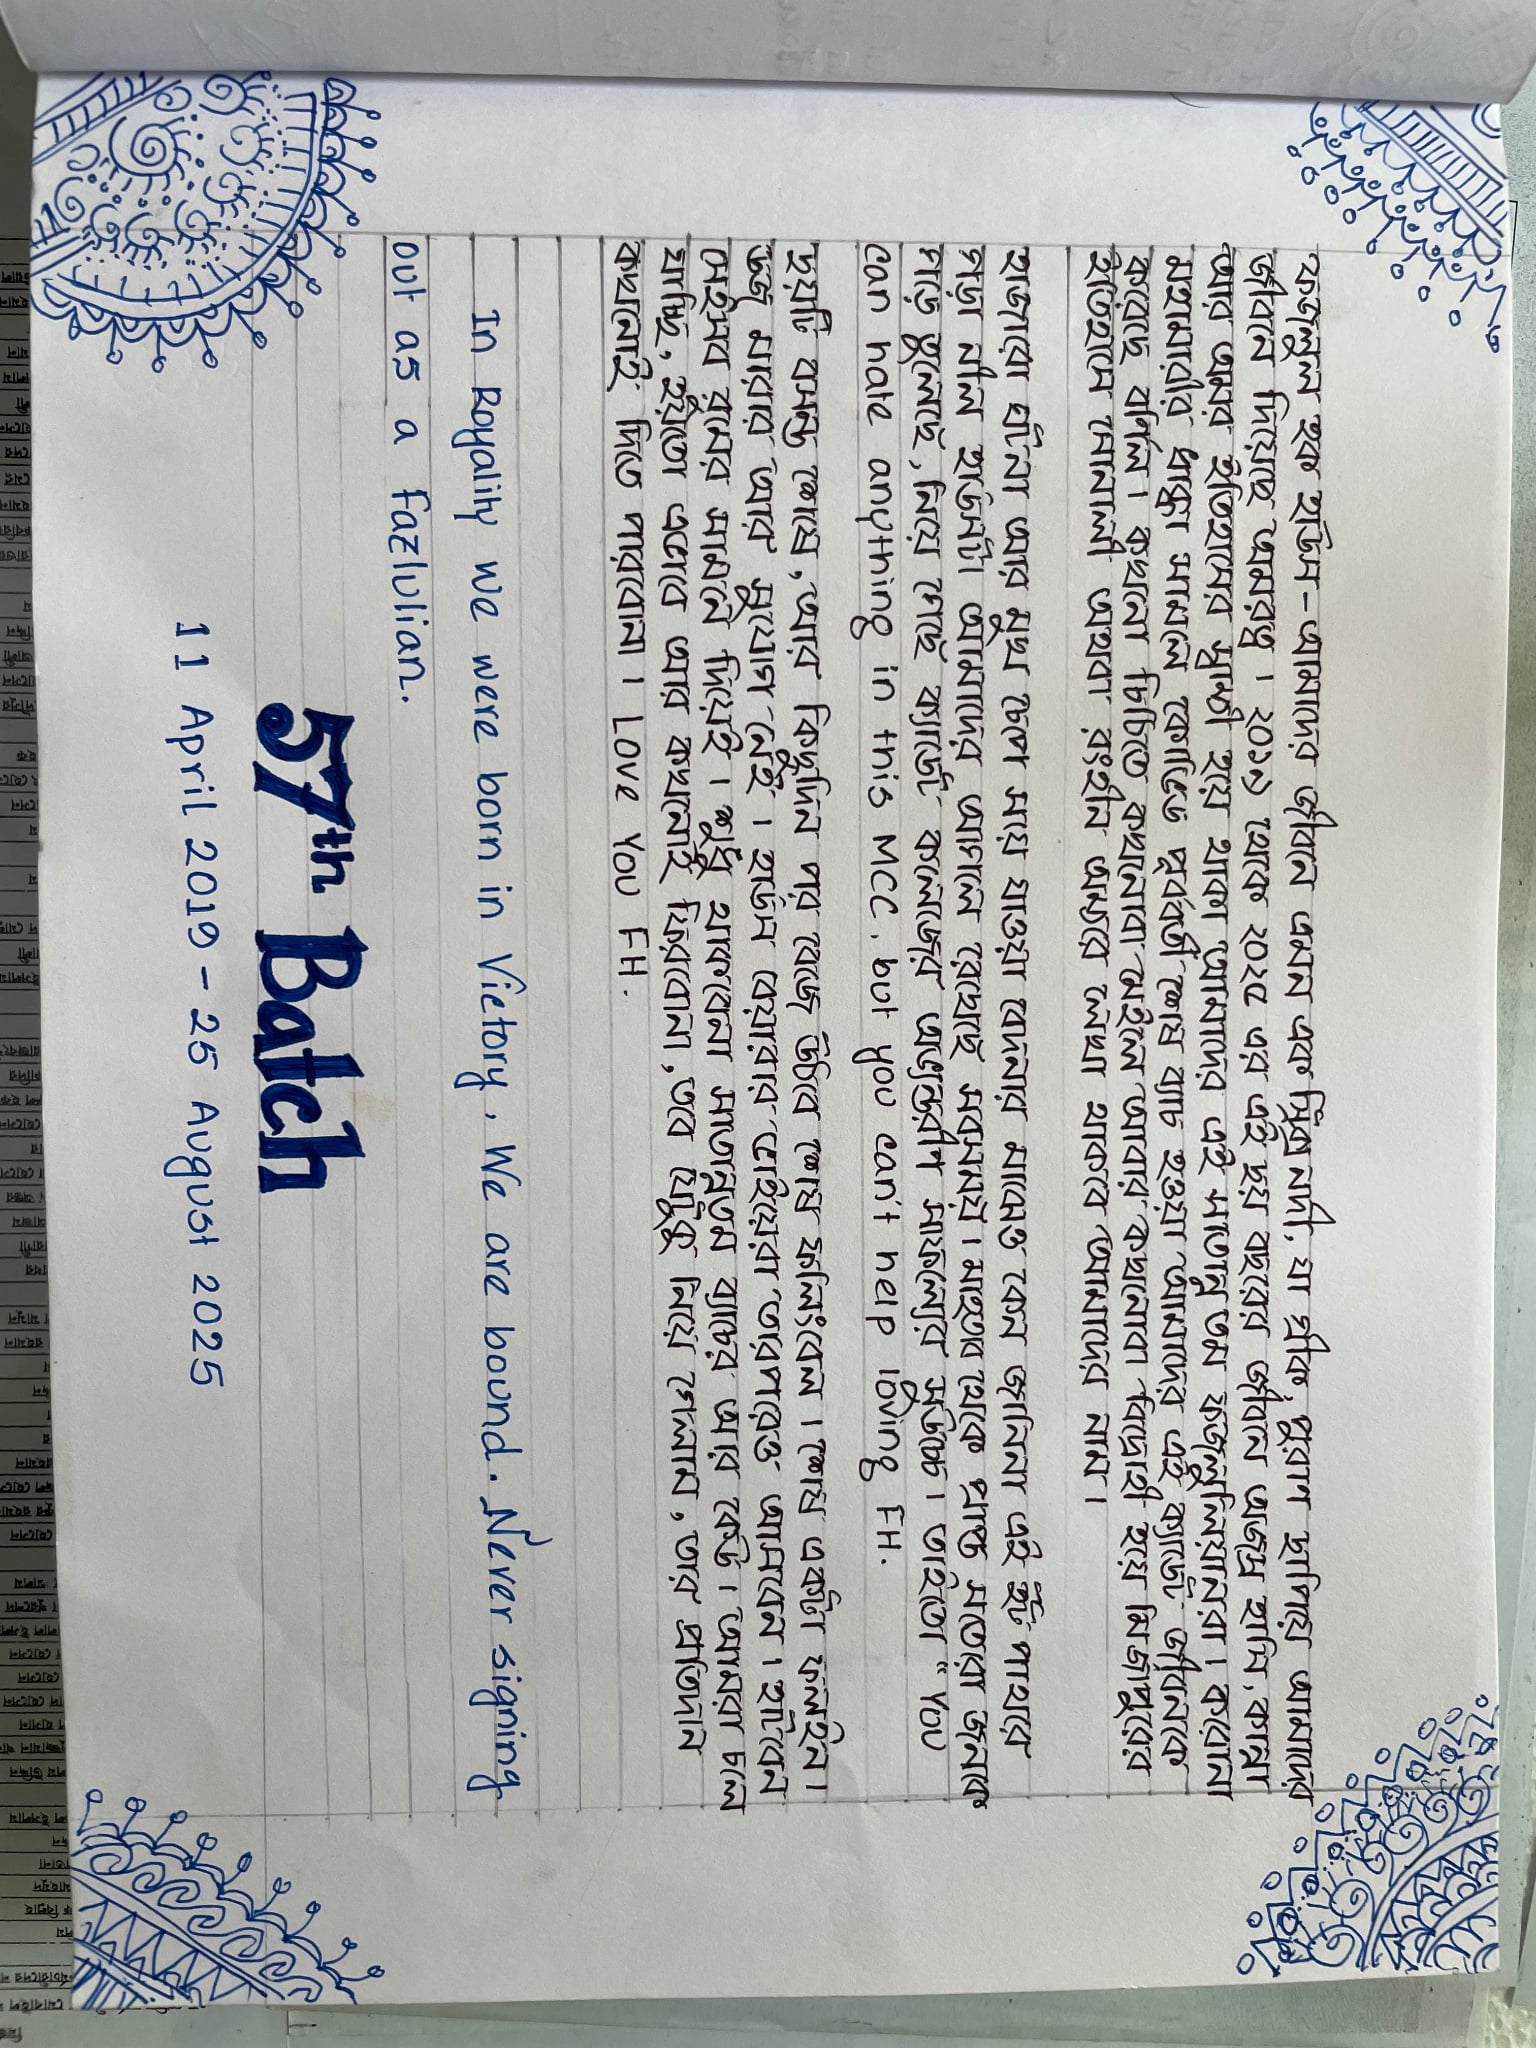 ফজলুল হক হাউস - আমাদের জীবনে এমন এক স্টিক্স নদী, যা গ্রীক, পুরাণ ছাপিয়ে আমাদের
জীবনে দিয়েছে অমরত্ব। ২০১৯ থেকে ২০২৫ এর এই ছয় বছরের জীবনে অজস্র হাসি, কান্না
আর অমর ইতিহাসের স্বাক্ষী হয়ে থাকা আমাদের এই সাতান্ন তম ফজলুলিয়ানরা। করোনা
মহামারীর ধাক্কা সামলে কোভিড পূর্ববর্তী শেষ ব্যাচ হওয়া আমাদের এই ক্যাডেট জীবনকে
করেছে বর্ণিল। কখনো চিঠিতে কখনোবা মেইলে আবার কখনোবা বিদ্রোহী হয়ে মির্জাপুরের
ইতিহাসে সোনালী অথবা রংহীন অক্ষরে লেখা থাকবে আমাদের নাম।
হাজারো ঘটনা আর মুখ চেপে সয়ে যাওয়া বেদনার মাঝেও কেন জানিনা এই ইট পাথরে
গড়া নীল হাউসটা আমাদের আগলে রেখেছে সবসময়। মাহতাব থেকে প্রাপ্ত সতেরো জনকে
গড়ে তুলেছে, নিয়ে গেছে ক্যাডেট কলেজের অভ্যন্তরীণ সাফল্যের সুউচ্চে। তাইতো "You
can hate anything in this MCC, but you can't help loving FH.
ছয়টি বসন্ত শেষে, আর কিছুদিন পর বেজে উঠবে শেষ ফলিংবেল। শেষ একটা ফলইন।
ডজ মারার আর সুযোগ নেই। হাউস বেয়ারার ভাইয়েরা তারপরেও আসবেন। হাটবেন
সেইসব রুমের সামনে দিয়েই। শুধু থাকবেনা সাতান্নতম ব্যাচের আর কেউ। আমরা চলে
যাচ্ছি, হয়তো এভাবে আর কখনোই ফিরবোনা, তবে যেটুকু নিয়ে গেলাম, তার প্রতিদান
কখনোই দিতে পারবোনা। Love You FH.
In Royality we were born in Victory, We are bound. Never signing
out as a Fazlulian.
57th Batch
11 April 2019 - 25 August 2025